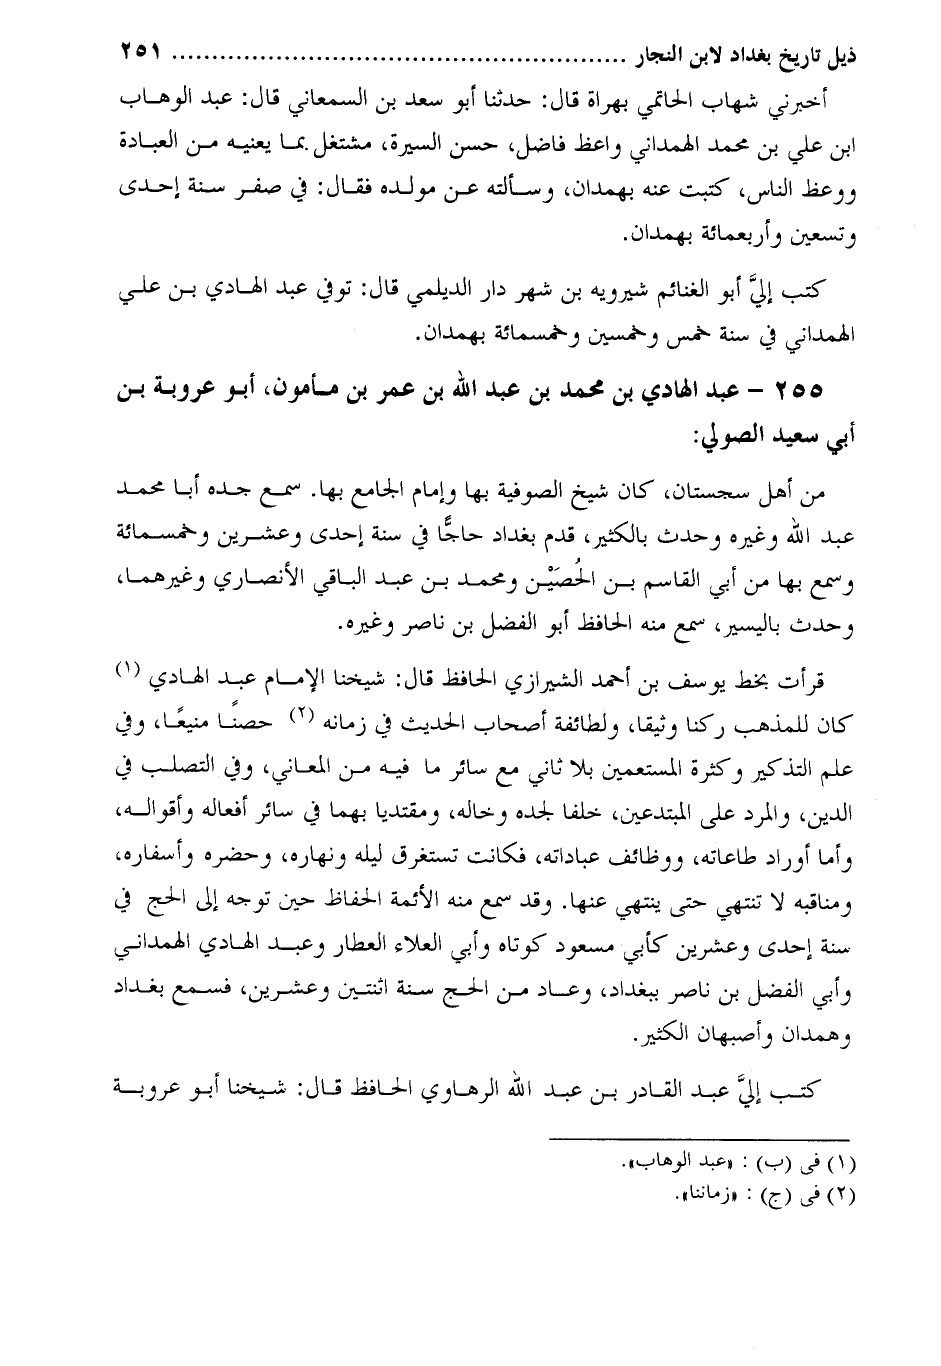 ذيل تاريخ بغداد لابن النجار ..................................................... ٢٥١
أخبرني شهاب الحاتمي بهراة قال: حدثنا أبو سعد بن السمعاني قال: عبد الوهاب
ابن علي بن محمد الهمداني واعظ فاضل، حسن السيرة، مشتغل بما يعنيه من العبادة
ووعظ الناس، كتبت عنه بهمدان، وسألته عن مولده فقال: في صفر سنة إحدى
وتسعين وأربعمائة بهمدان.
كتب إليَّ أبو الغنائم شيرويه بن شهر دار الديلمي قال: توفي عبد الهادي بن علي
الهمداني في سنة خمس وخمسين وخمسمائة بهمدان.
٢٥٥ – عبد الهادي بن محمد بن عبد الله بن عمر بن مأمون، أبو عروبة بن
أبي سعيد الصولي:
من أهل سجستان، كان شيخ الصوفية بها وإمام الجامع بها. سمع جده أبا محمد
عبد الله وغيره وحدث بالكثير، قدم بغداد حاجًّا في سنة إحدى وعشرين وخمسمائة
وسمع بها من أبي القاسم بن الحُصَيْن ومحمد بن عبد الباقي الأنصاري وغيرهما،
وحدث باليسير، سمع منه الحافظ أبو الفضل بن ناصر وغيره.
قرأت بخط يوسف بن أحمد الشيرازي الحافظ قال: شيخنا الإمام عبد الهادي (١)
كان للمذهب ركنا وثيقا، ولطائفة أصحاب الحديث في زمانه (٢) حصنًا منيعًا، وفي
علم التذكير وكثرة المستعمين بلا ثاني مع سائر ما فيه من المعاني، وفي التصلب في
الدين، والمرد على المبتدعين، خلفا لجده وخاله، ومقتديا بهما في سائر أفعاله وأقواله،
وأما أوراد طاعاته، ووظائف عباداته، فكانت تستغرق ليله ونهاره، وحضره وأسفاره،
ومناقبه لا تنتهي حتى ينتهي عنها. وقد سمع منه الأئمة الحفاظ حين توجه إلى الحج في
سنة إحدى وعشرين كأبي مسعود كوتاه وأبي العلاء العطار وعبد الهادي الهمداني
وأبي الفضل بن ناصر ببغداد، وعاد من الحج سنة اثنتين وعشرين، فسمع بغداد
وهمدان وأصبهان الكثير.
كتب إليَّ عبد القادر بن عبد الله الرهاوي الحافظ قال: شيخنا أبو عروبة
(١) فى (ب) : «عبد الوهاب».
(٢) فى (ج) : «زماننا».